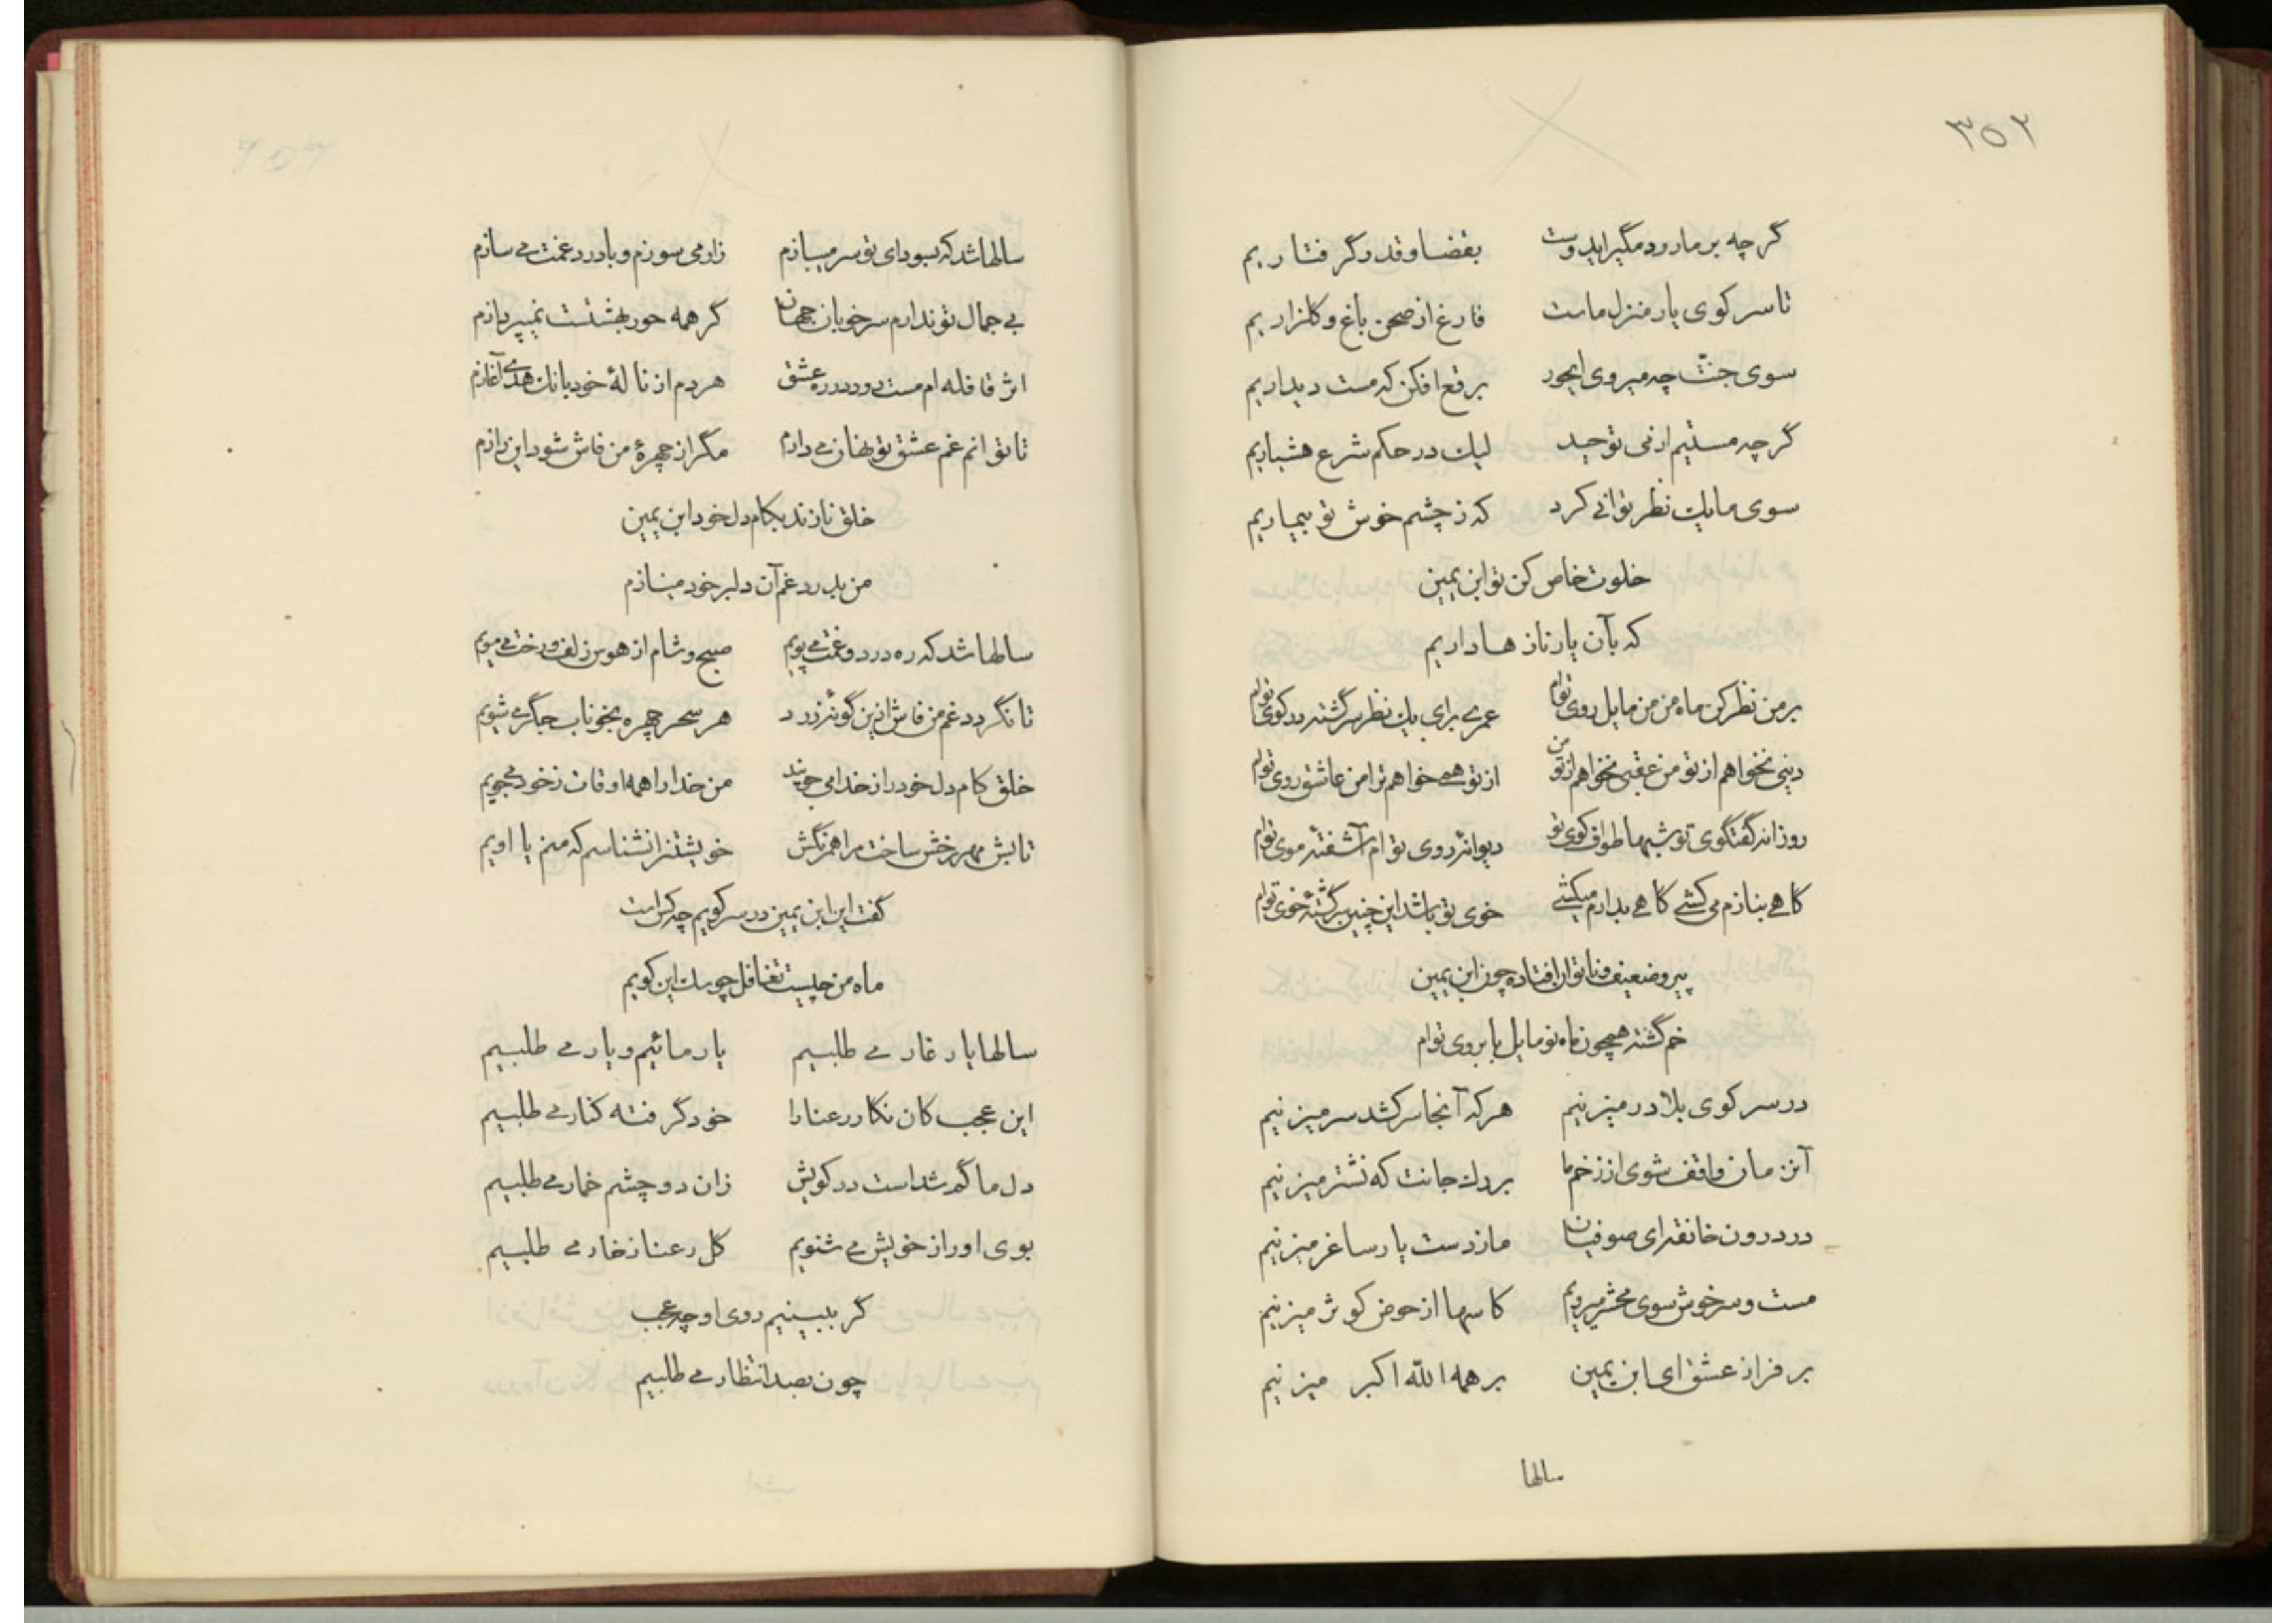 ۳۵۲
گرچه بر ما رود مگیر ایدوست بقضا و قدر گرفتاریم
تا سر کوی یار منزل ماست فارغ از صحن باغ و گلزاریم
سوی جنّت چه میروی ایحور برقع افکن که مست دیداریم
گرچه مستیم از می توحید لیک در حکم شرع هشیاریم
سوی ما یک نظر توانی کرد که ز چشم خوش تو بیماریم
خلوت خاص کن تو ابن یمین
که بآن یار نازها داریم
بر من نظر کن ماه من من مایل روی توام عمری برای یک نظر سرگشته در کوی توام
دینی نخواهم از تو من عقبی نخواهم از تو من از تو همی خواهم ترا من عاشق روی توام
روزانه گفتگوی تو شبها طواف کوی تو دیوانهٔ روی توام آشفتهٔ موی توام
گاهی بنازم می کشی گاهی بدارم میکشی خوی تو باشد این چنین سرگشتهٔ خوی توام
پیر و ضعیف و ناتوان افتاده چون ابن یمین
خم گشته همچون ماه نو مایل بابروی توام
در سر کوی بلا در میزنیم هر که آنجا سر کشد سر میزنیم
آنزمان واقف شوی از زخم ما بر دل جانت که نشتر میزنیم
در درون خانقه ای صوفیان ما ز دست یار ساغر میزنیم
مست و سرخوش سوی محشر میرویم کاسها از حوض کوثر میزنیم
بر فراز عشق ای ابن یمین بر همه الله اکبر میزنیم
سالها
سالها شد که بسودای تو سر میبازم زار می سوزم و با درد غمت می سازم
بی جمال تو ندارم سر خوبان جهان گر همه حور بهشتست نمیپردازم
اثر قافله ام مست دود در ره عشق هر دم از نالهٔ خود بانک همی آغازم
تا توانم غم عشق تو نهان می دارم مگر از چهرهٔ من فاش شود این رازم
خلق نازند بکام دل خود ابن یمین
من بدرد غم آن دلبر خود مینازم
سالها شد که ره درد و غمت می پویم صبح و شام از هوس زلف و رخت می مویم
تا نگردد غم من فاش ازین گونهٔ زرد هر سحر چهره بخوناب جگر می شویم
خلق کام دل خود را ز خدا می جویند من خدا را همه اوقات ز خود میجویم
تابش مهر رخش ساخت مرا همرنگش خویشتن را نشناسم که منم یا اویم
گفت این ابن یمین در سر کویم چه کس است
ماه من چیست تغافل چو سگ این کویم
سالها یار غار می طلبیم یار مائیم و یار می طلبیم
این عجب کان نگار رعنا را خود گرفته کنار می طلبیم
دل ما گم شداست در کویش زان دو چشم خمار می طلبیم
بوی او را ز خویش می شنویم گل رعنا ز خار می طلبیم
گر ببینیم روی او چه عجب
چون بصد انتظار می طلبیم